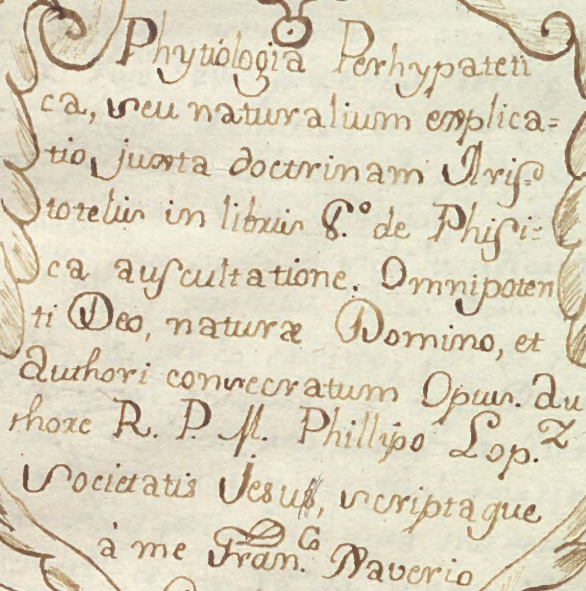 Phytiologia Perhypateti
ca, seu naturalium explica=
tio, juxta doctrinam Aris=
totelis in libris 8.º de Phisi=
ca auscultatione. Omnipoten
ti Deo, naturæ Domino, et
Authori consecratum Opus. Au
thore R. P. M. Phillipo Lop.z
Societatis Jesus, scriptaque
à me Fran.co Naverio